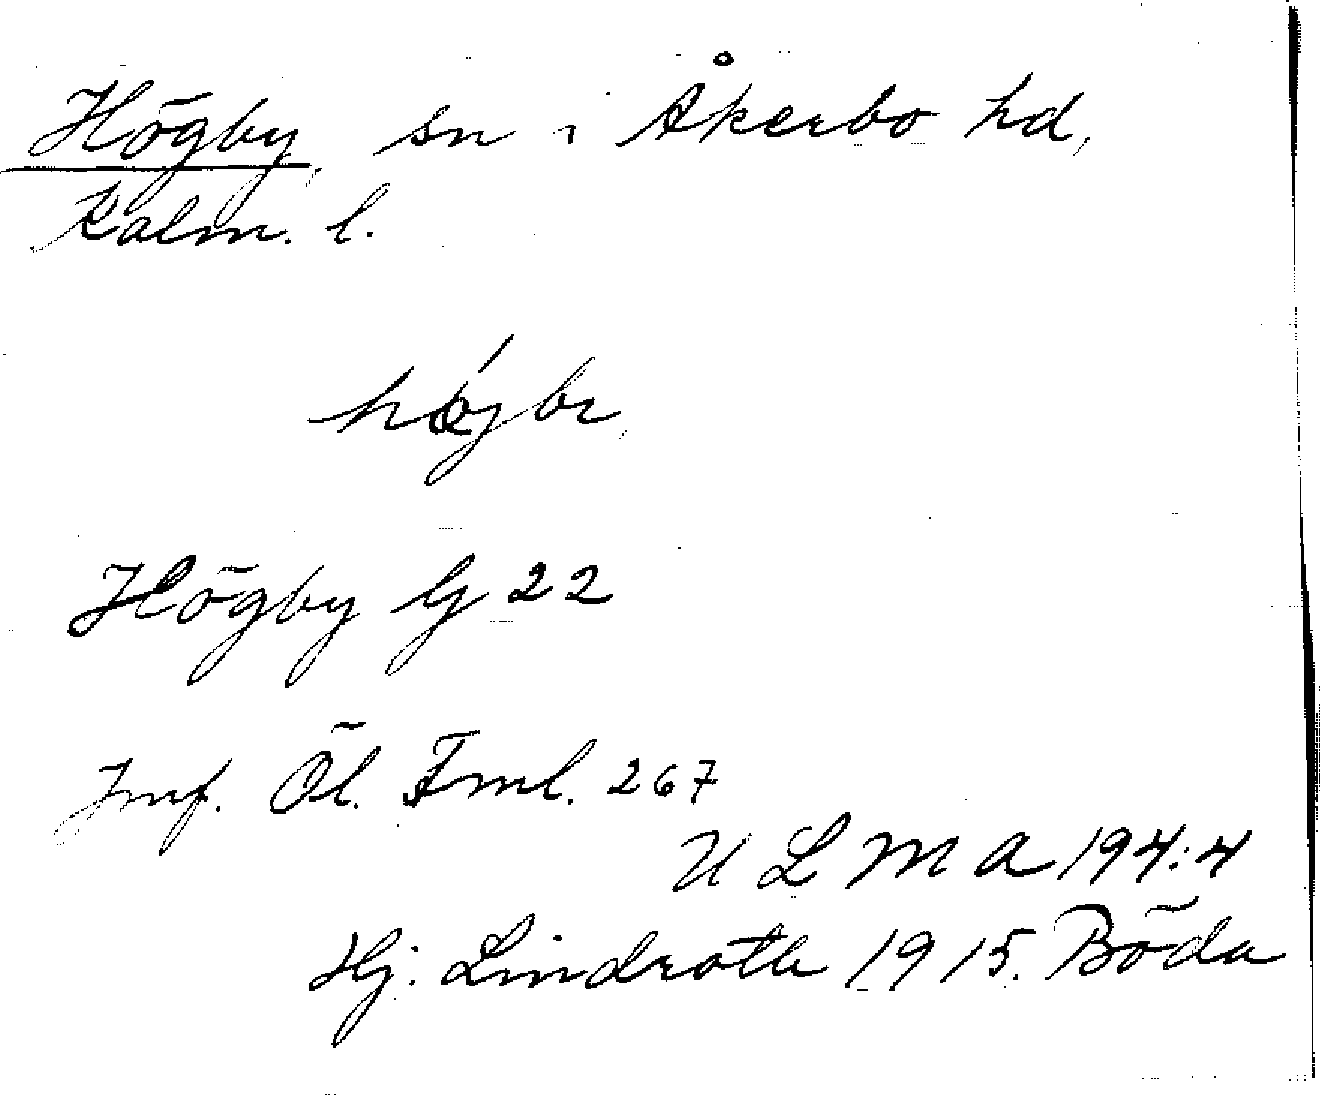 Högby, sn i Åkerbo hd,
Kalm. l.
Högby G 22
Jmf. Öl. Fml. 267
ULMA 194:4
Hj. Lindroth 1915. Böda